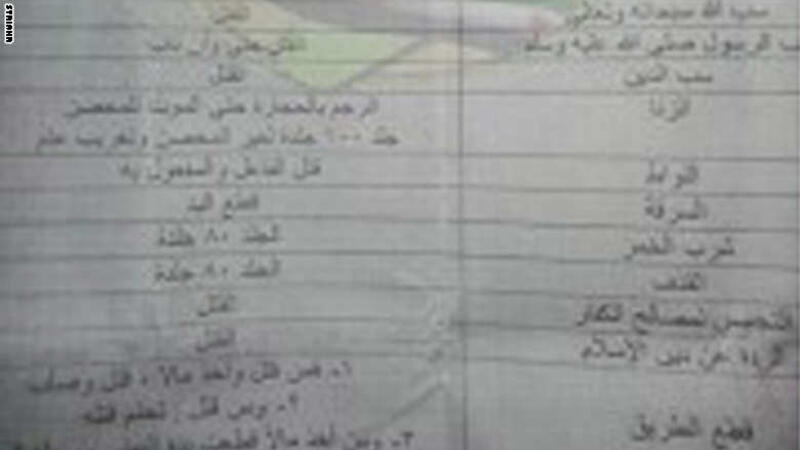 STRIAHR
سبه الله سبحانه وتعالى القتل
سب الرسول صلى الله عليه وسلم القتل حتى وإن تاب
سب الدين القتل
الزنا الرجم بالحجارة حتى الموت للمحصن
جلد ١٠٠ جلدة لغير المحصن وتغريب عام
اللواط قتل الفاعل والمفعول به
السرقة قطع اليد
شرب الخمر الجلد ٨٠ جلدة
القذف الجلد ٨٠ جلدة
التجسس لمصالح الكفار القتل
الردة عن دين الإسلام القتل
١- فمن قتل وأخذ مالا ، قتل وصلب
قطع الطريق ٢- ومن قتل : تحتم قتله
٣- ومن أخذ مالا قطعت يده